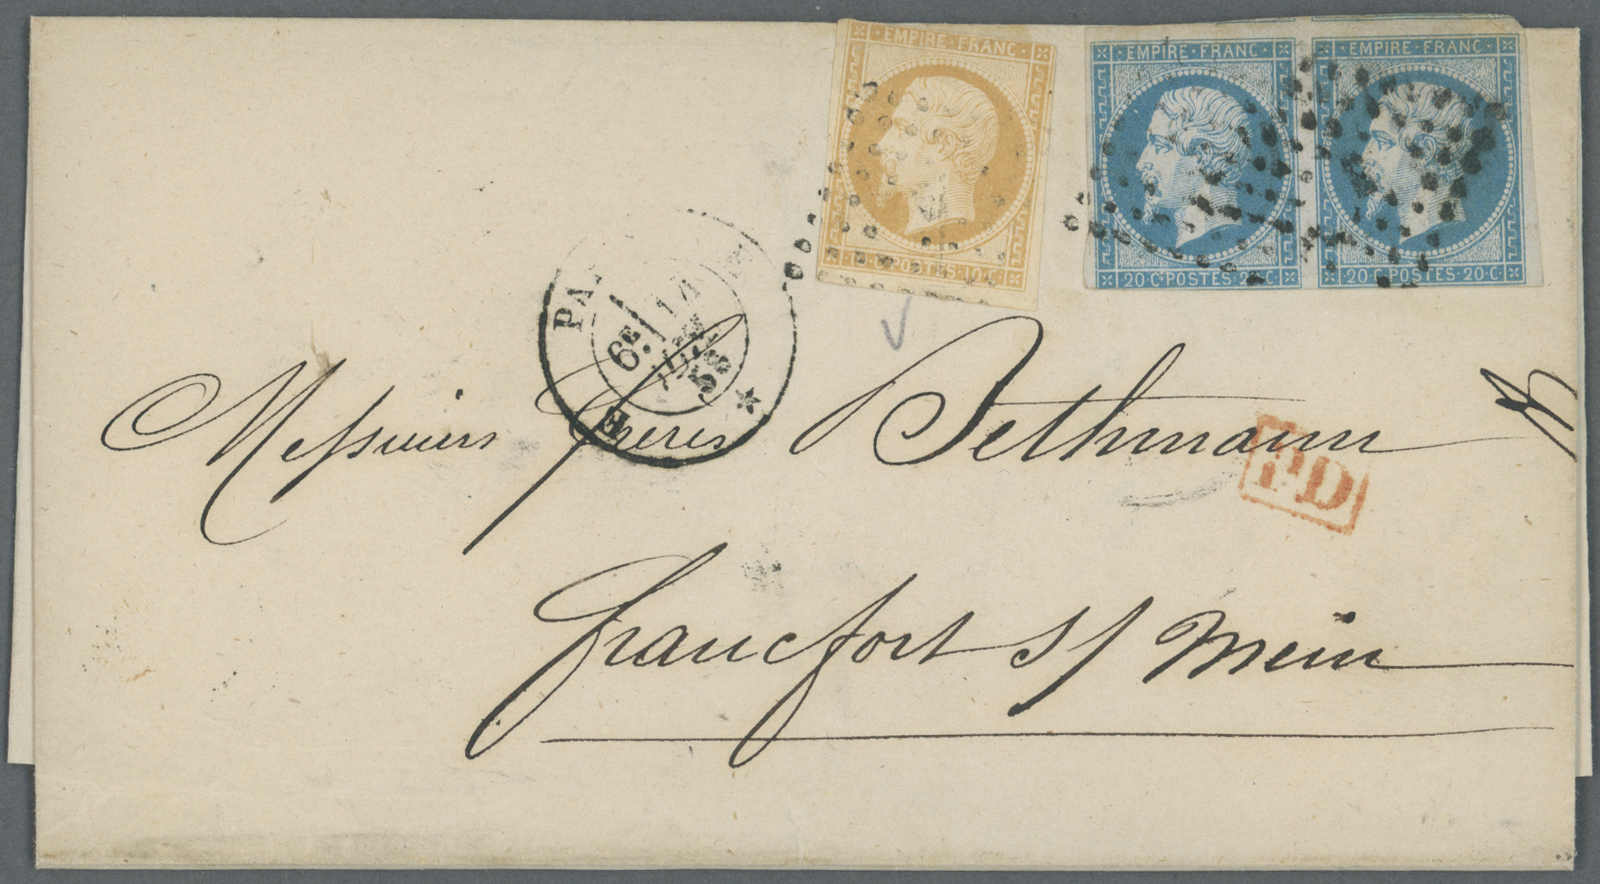 EMPIRE · FRANC ·
10 · C · POSTES · 10 · C ·
EMPIRE · FRANC ·
20 · C · POSTES · 20 · C ·
EMPIRE · FRANC ·
20 · C · POSTES · 20 · C ·
6E 14
58
E
Messieurs frères Bethmann
PD
Francfort s/ Mein